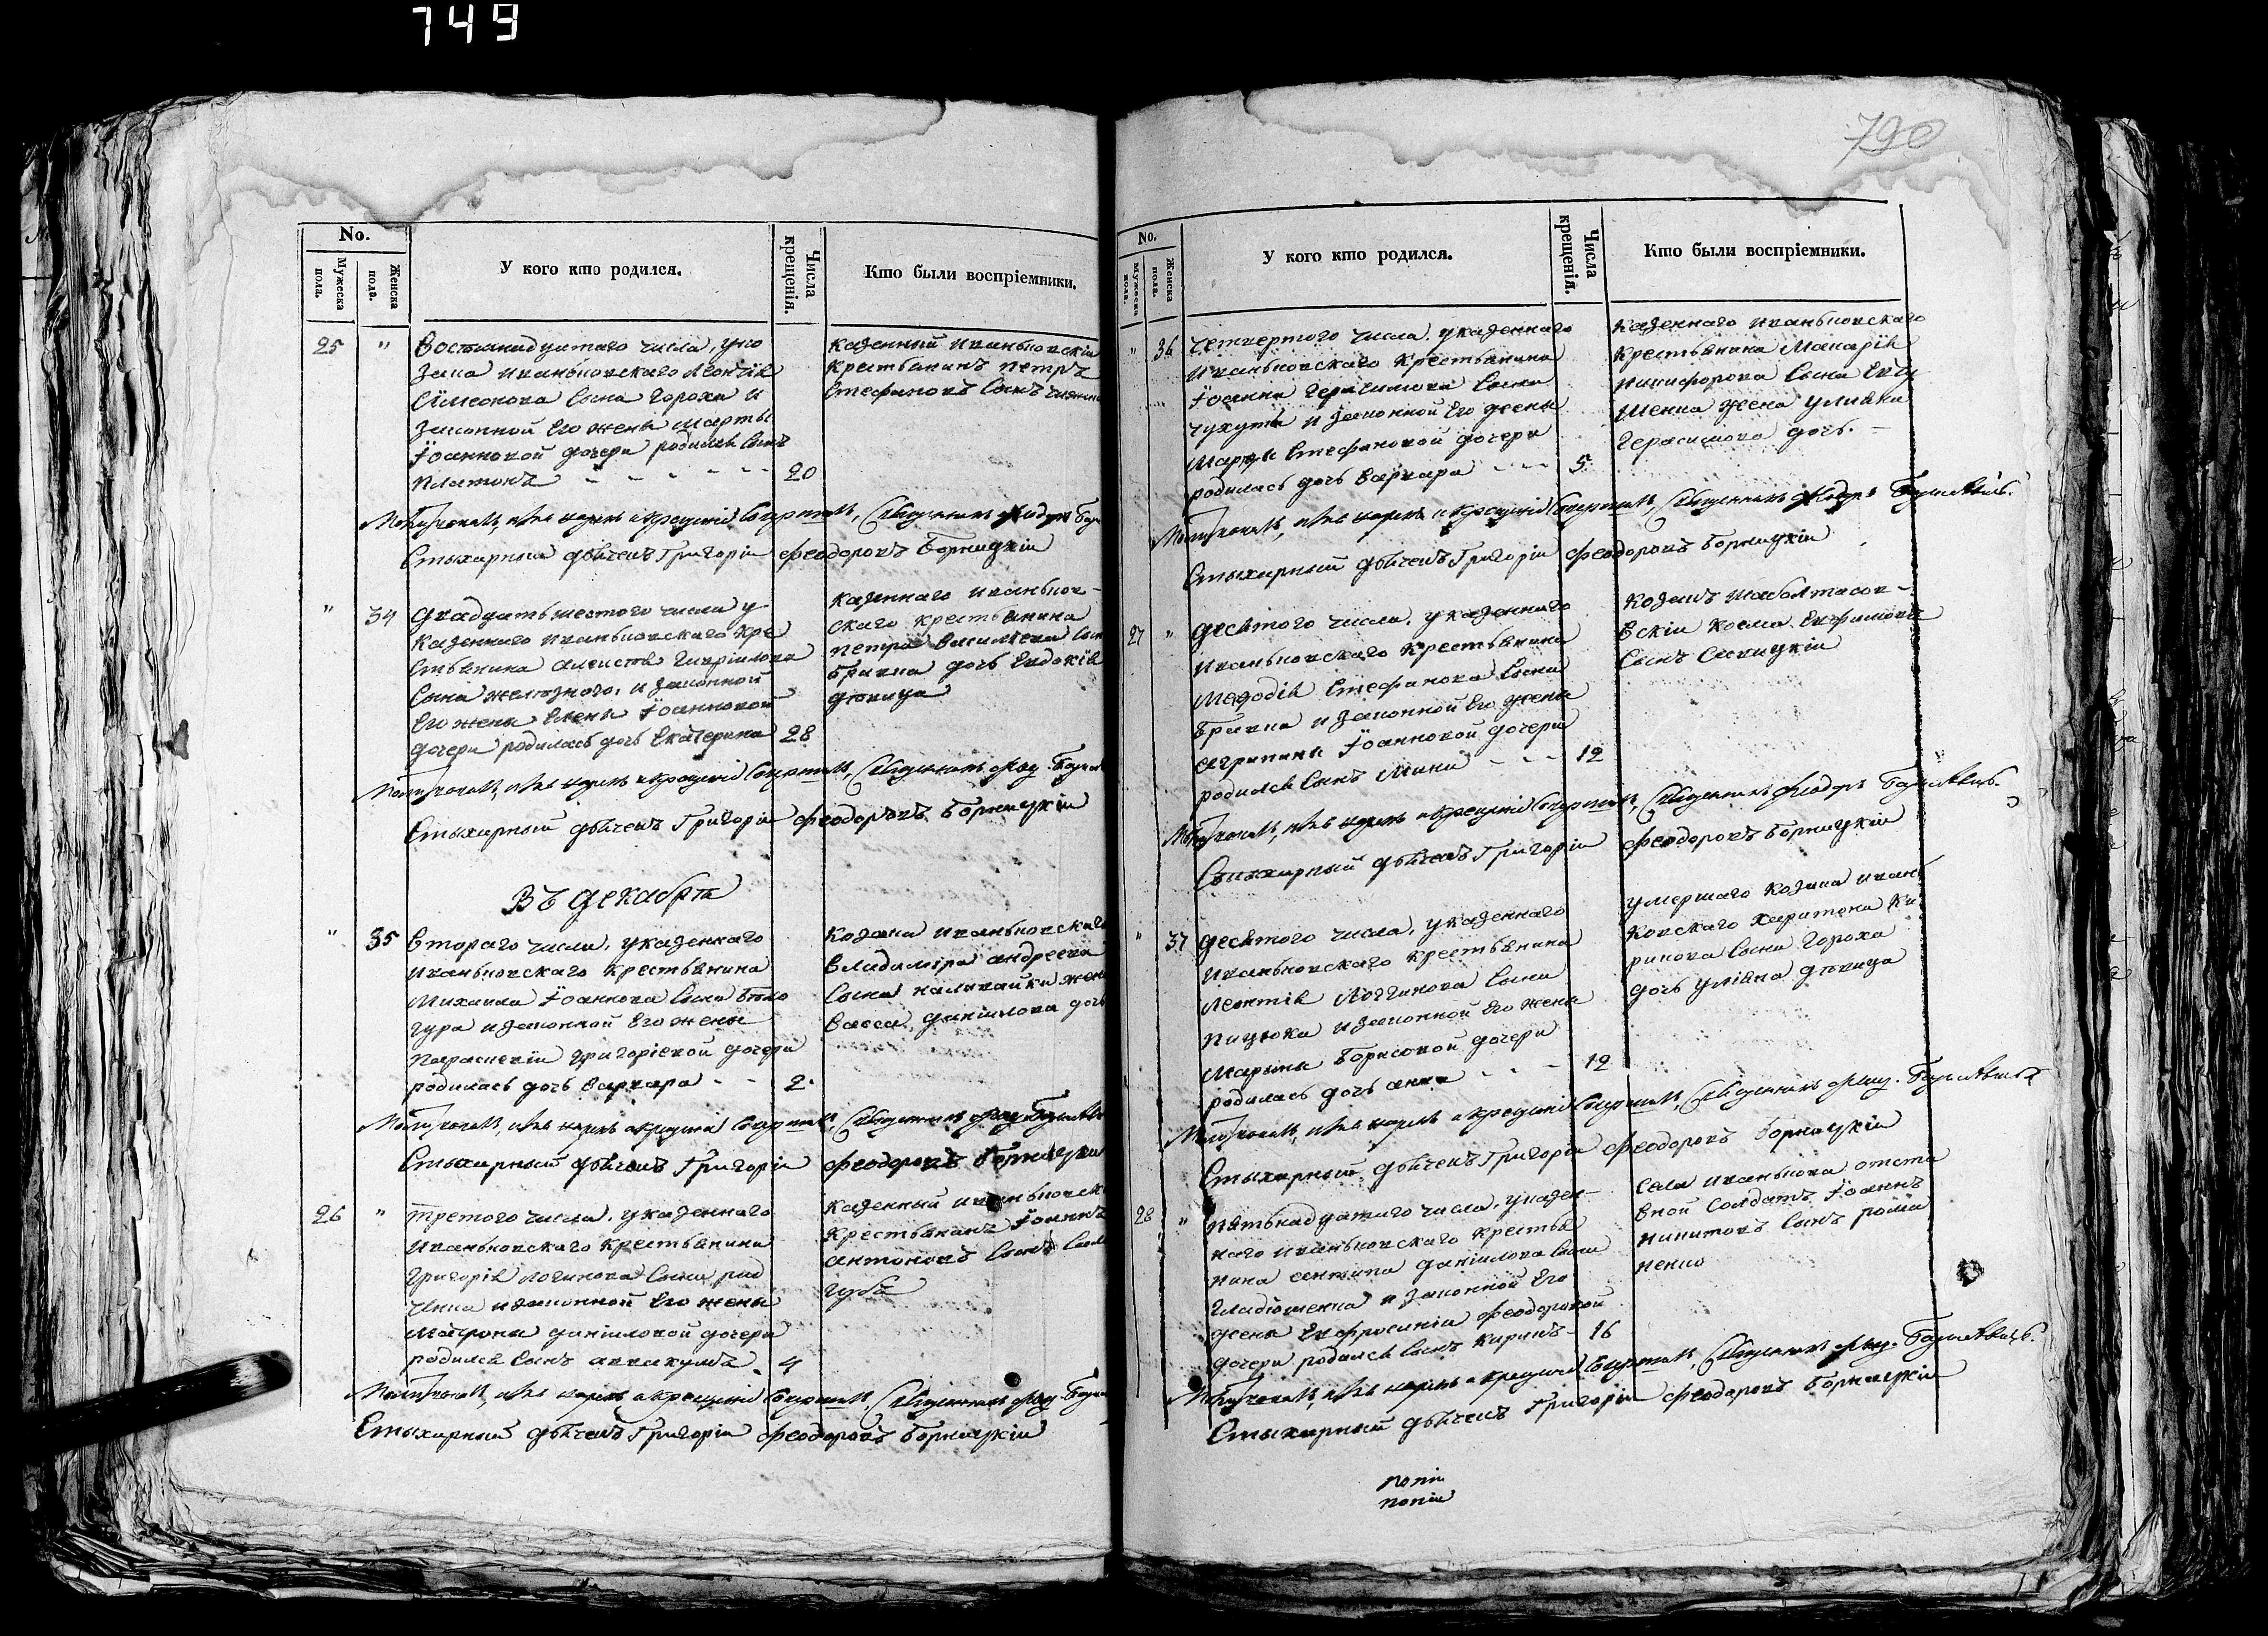 749
No.
Мужеска пола.
Женска пола.
У кого кто родился.
Числа крещенія.
Кто были воспріемники.
25 "
Восемнадцатаго числа, у ко
зака Иваньковскаго Леонтія
Сѵмеонова сына Гороха и
законной его жены Марты
Іоанновой дочери родился сынъ
Платонъ - - - - 20
казенный Иваньковскій
крестьянинъ Петръ
Стефановъ сынъ
Молитвовалъ, имя нарекъ и крещеніе совершилъ, Священникъ Ѳеодоръ
Стихарный дьячекъ Григорій Ѳеодоровъ Борницкій
" 34
Двадцать шестого числа у
казеннаго Иваньковскаго кре
стьянина Гавріилова
сына Желѣзного, и законной
его жены Елены Іоанновой
дочери родилась дочь Екатерина 28
казеннаго Иваньков-
скаго крестьянина
Петра Василіева сына
Бритна дочь Евдокія
дѣвица
Молитвовалъ, имя нарекъ и крещеніе совершилъ, Священникъ
Стихарный дьячекъ Григорій Ѳеодоровъ Борницкій
Въ декабрѣ
" 35
Втораго числа, у казеннаго
Иваньковскаго крестьянина
Михаила Іоаннова сына Бѣло
гура и законной его жены
Параскевіи Григоріевой дочери
родилась дочь Варвара - - 2.
Козака Иваньковскаго
Владиміра Андреева
сына Наливайки жена
Васса Даніилова дочь
Молитвовалъ, имя нарекъ и крещеніе совершилъ, Священникъ
Стихарный дьячекъ Григорій Ѳеодоровъ Борницкій
26 "
Третого числа, у казеннаго
Иваньковскаго крестьянина
Григорія Логинова сына Рад
ченка и законной его жены
Матроны Даніиловой дочери
родился сынъ Аввакумъ. 4
Казенный Иваньковск
крестьянинъ Іоаннъ
Антоновъ сынъ
губъ
Молитвовалъ, имя нарекъ и крещеніе совершилъ, Священникъ
Стихарный дьячекъ Григорій Ѳеодоровъ Борницкій
790
No.
Мужеска пола.
Женска пола.
У кого кто родился.
Числа крещенія.
Кто были воспріемники.
" 36
Четвертого числа, у казеннаго
Иваньковскаго крестьянина
Іоанна Герасимова сына
Чухута и законной его жены
Марѳы Стефановой дочери
родилась дочь Варвара - - - 5
Казеннаго Иваньковскаго
крестьянина Макарія
Никифорова сына Евту
шенка жена Улияна
Герасимова дочь. -
Молитвовалъ, имя нарекъ и крещеніе совершилъ, Священникъ Ѳеодоръ
Стихарный дьячекъ Григорій Ѳеодоровъ Борницкій
27 "
Десятого числа, у казеннаго
Иваньковскаго крестьянина
Меѳодія Стефанова сына
Бритна и законной его жены
Агрипины Іоанновой дочери
родился сынъ Мина - - - 12
Козакъ Шаболтасов-
вскій Косма Евфимовъ
сынъ Савицкій
Молитвовалъ, имя нарекъ и крещеніе совершилъ, Священникъ Ѳеодоръ
Стихарный дьячекъ Григорій Ѳеодоровъ Борницкій
" 37
Десятого числа, у казеннаго
Иваньковскаго крестьянина
Леонтія Логгинова сына
Пацюка и законной его жены
Марины Борисовой дочери
родилась дочь Анна - - - 12
умершаго козака Ивань
ковскаго Харитона Ки
рикова сына Гороха
дочь Уліяна дѣвица
Молитвовалъ, имя нарекъ и крещеніе совершилъ, Священникъ
Стихарный дьячекъ Григорій Ѳеодоровъ Борницкій
28 "
Пятьнадцатаго числа, у казен-
наго Иваньковскаго крестья
нина Антипа Даніилова сына
Гладюшенка и законной его
жены Евфросиніи Ѳеодоровой
дочери родился сынъ Кирикъ - 16
Села Иванькова отста
вной солдатъ Іоаннъ
Никитовъ сынъ Рома
ненко
Молитвовалъ, имя нарекъ и крещеніе совершилъ, Священникъ
Стихарный дьячекъ Григорій Ѳеодоровъ Борницкій